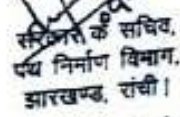 सरकार के सचिव,
पथ निर्माण विभाग,
झारखण्ड, रांची।